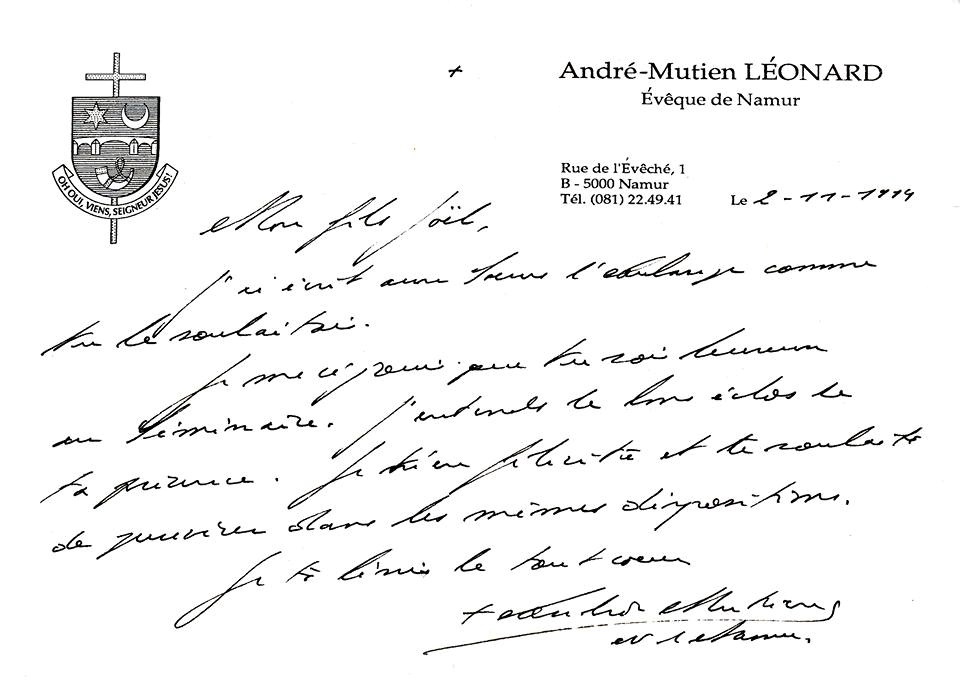 +
André-Mutien LÉONARD
Évêque de Namur
Rue de l'Évêché, 1
B - 5000 Namur
Tél. (081) 22.49.41
Le 2-11-1994
OH OUI, VIENS, SEIGNEUR JÉSUS!
Mon fils Joël,
J'ai écrit aux comme
tu le souhaitais.
Je me réjouis que tu sois heureux
au Séminaire. J'entends de bons échos de
ta présence. Je t'en félicite et te souhaite
de poursuivre dans les mêmes dispositions.
Je te bénis de tout coeur
+ André-Mutien
ev. de Namur.